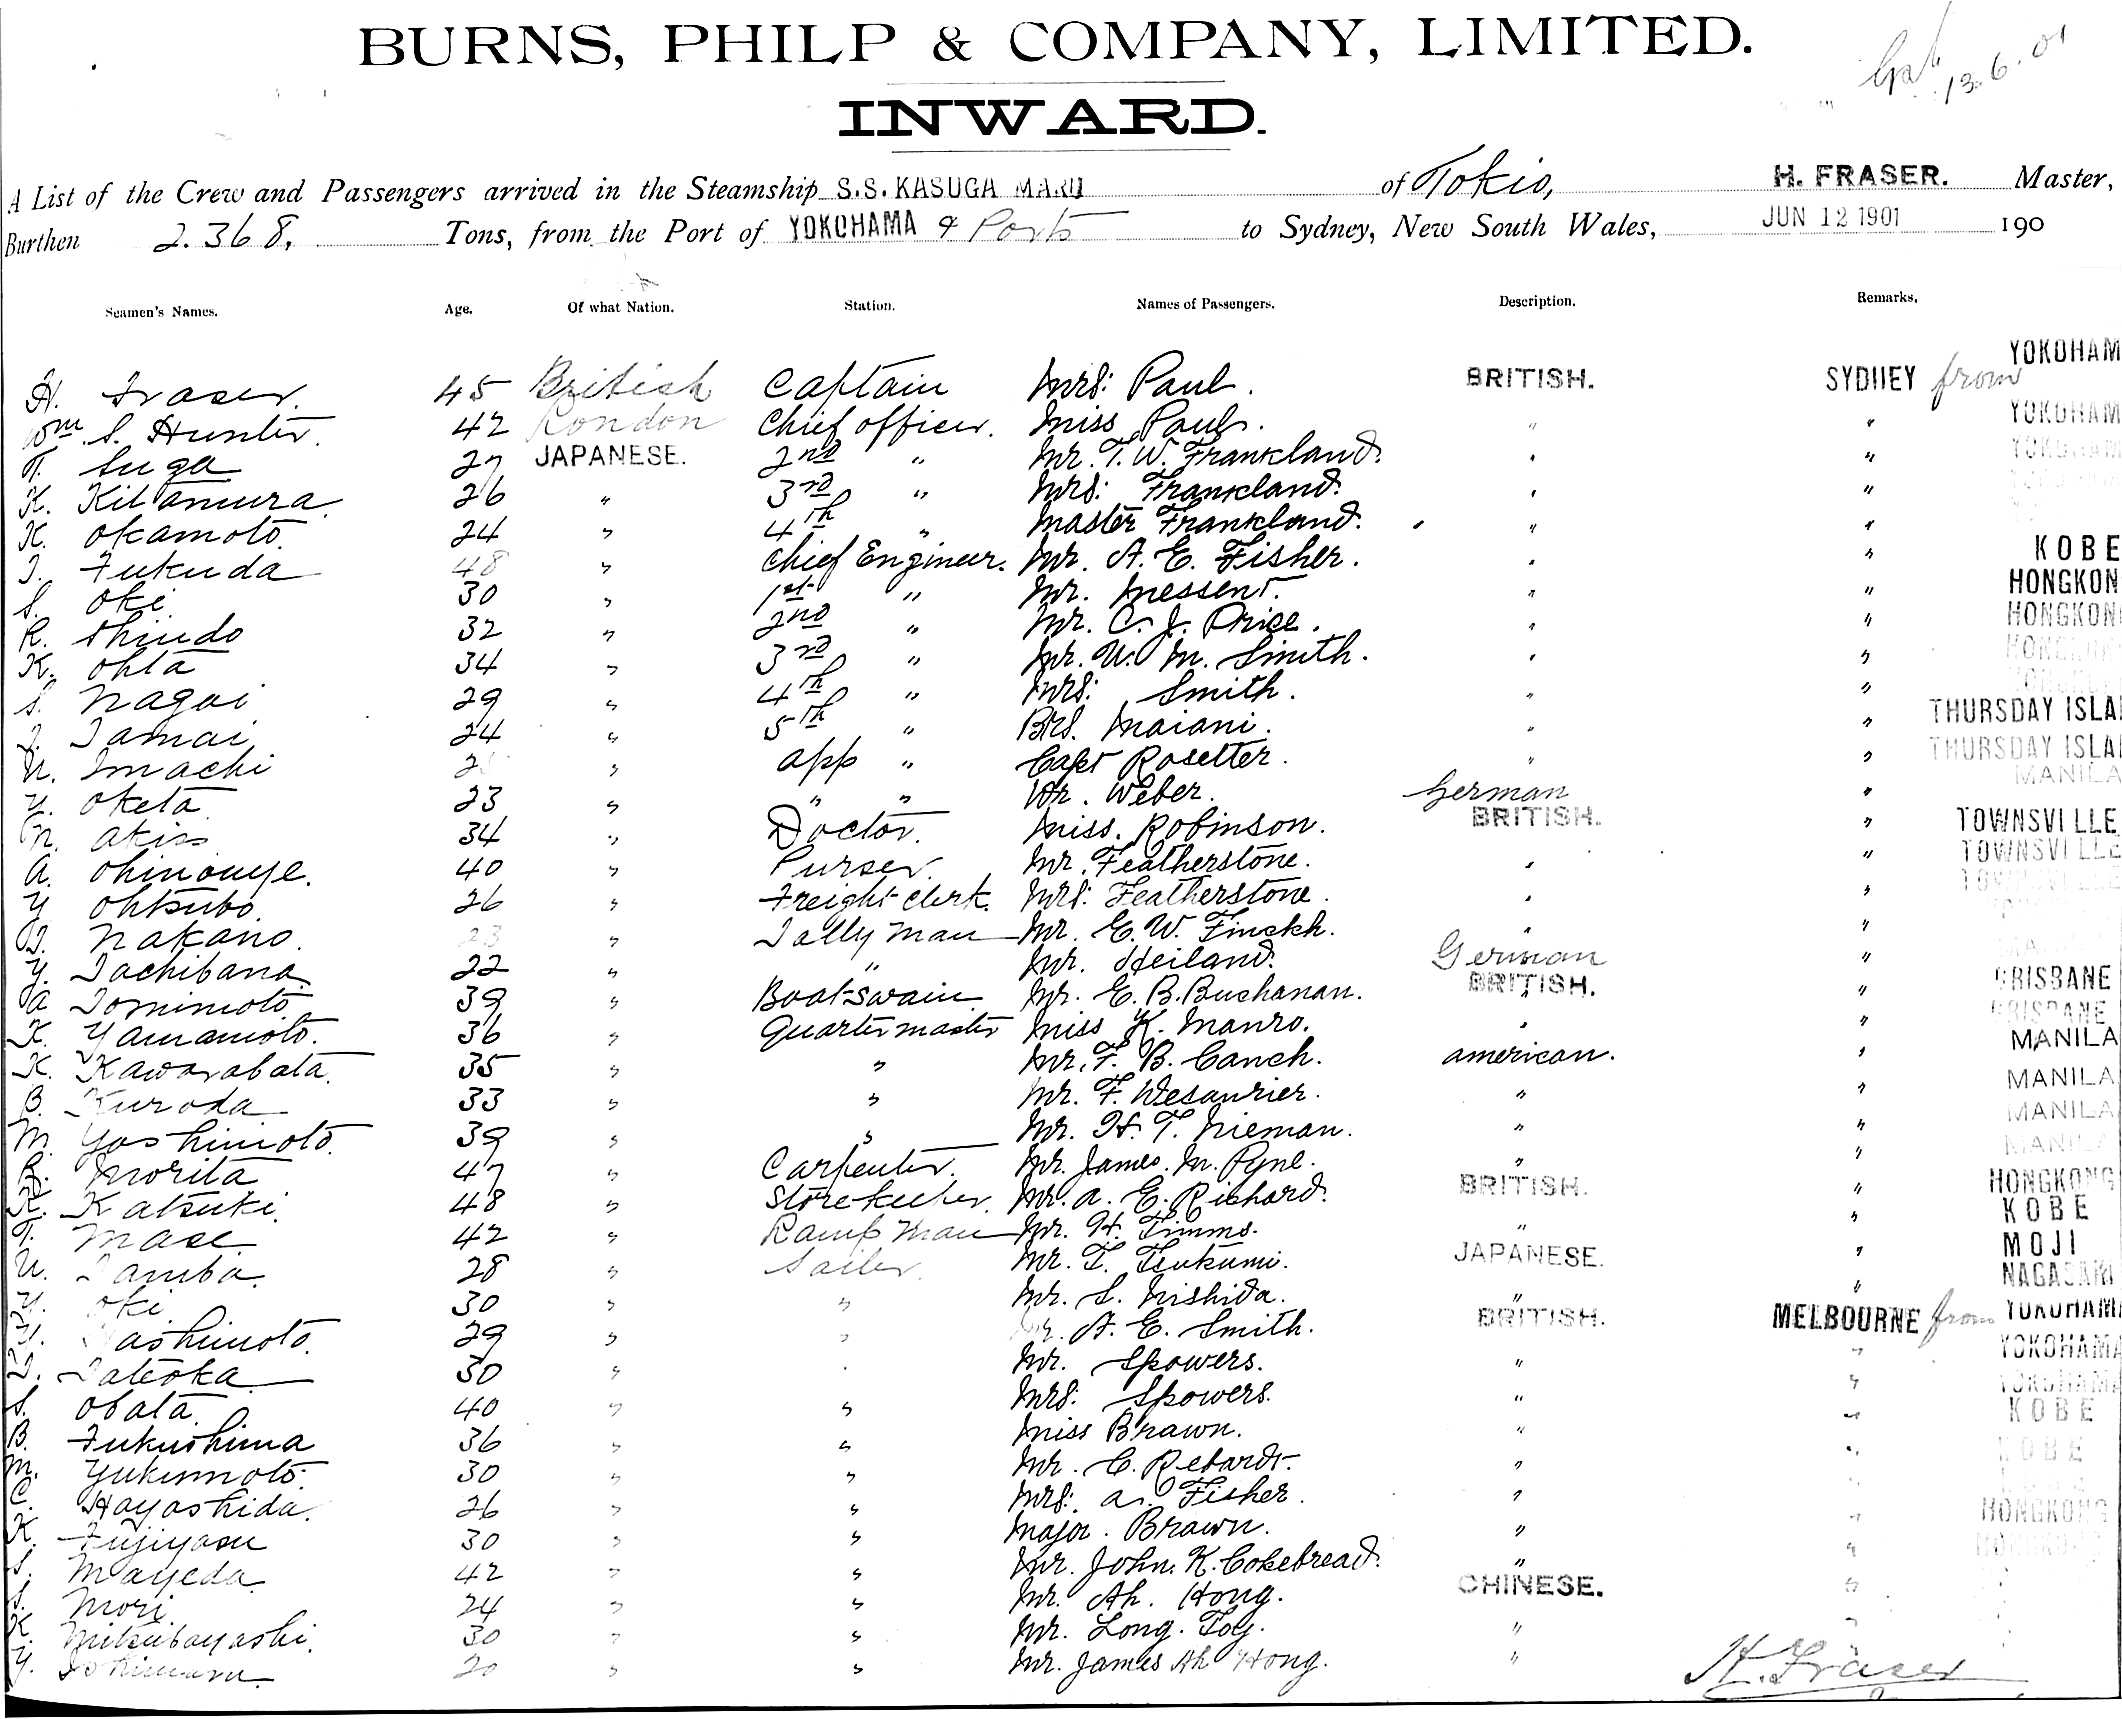 BURNS, PHILP & COMPANY, LIMITED.
13.6.01
INWARD.
A List of the Crew and Passengers arrived in the Steamship S.S. KASUGA MARU of Tokio, H. FRASER. Master,
Burthen 2.368, Tons, from the Port of YOKOHAMA & Ports to Sydney, New South Wales, JUN 12 1901 190
Seamen's Names. Age. Of what Nation. Station. Names of Passengers. Description. Remarks.
H. Fraser. 45 British Captain Mrs: Paul. BRITISH. SYDNEY from YOKOHAM
Wm S. Hunter. 42 London Chief officer. Miss Paul. " " YOKOHAM
T. Suga 27 JAPANESE. 2nd " Mr. T. W. Frankland. " " YOKOHAM
K. Kitamura 26 " 3rd " Mrs: Frankland. " "
K. Okamoto. 24 " 4th " Master Frankland. " "
I. Fukuda 48 " Chief Engineer. Mr. A. E. Fisher. " " KOBE
S. Oki 30 " 1st " Mr. Messent. " " HONGKON
R. Shindo 32 " 2nd " Mr. C. J. Price. " " HONGKON
K. Ohta 34 " 3rd " Mr. W. M. Smith. " " HONGKON
S. Nagai 29 " 4th " Mrs: Smith. " "
I. Tamai 24 " 5th " Brs. Maiani. " " THURSDAY ISLA
N. Imachi " app " Capt Rosetter. " " THURSDAY ISLA
Y. Oketa 23 " " " Dr. Weber. German " MANILA
N. Akiss 34 " Doctor. Miss. Robinson. BRITISH. " TOWNSVILLE
A. Ohinouye. 40 " Purser. Mr. Featherstone. " " TOWNSVILLE
Y Ohtsubo. 26 " Freight clerk. Mrs: Featherstone. " " TOWNSVILLE
Nakano. 23 " Tally man Mr. E. W. Finckh. " "
Y. Tachibana 22 " " Mr. Heiland. German "
A Tomimoto. 39 " Boatswain Mr. E. B. Buchanan. BRITISH. " BRISBANE
K. Yamamoto. 36 " Quartermaster Miss K. Manro. " " BRISBANE
K. Kawarabata. 35 " " Mr. F. B. Canch. american. " MANILA
B. Kuroda 33 " " Mr. F. Wesaurier. " " MANILA
M. Yoshimoto. 39 " " Mr. H. T. Nieman. " " MANILA
R. Morita 47 " Carpenter. Mr. James. M. Pyne. " " MANILA
K. Katsuki. 48 " Storekeeper. Mr. A. E. Richard. BRITISH. " HONGKONG
T. Mase 42 " Lamp man Mr. H. Timms. " " KOBE
N. Tamba. 28 " Sailor. Mr. T. Tsukumi. JAPANESE. " MOJI
Y. Oki 30 " " Mr. S. Nishida. " " NAGASAKI
Hashimoto. 29 " " A. E. Smith. BRITISH. MELBOURNE from YOKOHAMA
I. Tateoka 30 " Mr. Spowers. " " YOKOHAMA
S. Obata. 40 " " Mrs: Spowers. " " YOKOHAMA
B. Fukushima 36 " " Miss Brawn. " " KOBE
M. Yukimoto. 30 " " Mr. C. Retardt. " " KOBE
C. Hayashida. 26 " " Mrs: A. Fisher. "
K. Fujiyasu 30 " " Major. Brawn. " " HONGKONG
S. Mayeda. 42 " " Mr. John. K. Cokebread. " " HONGKONG
S. Mori. 24 " " Mr. Ah. Hong. CHINESE. "
K. Mitsubayashi. 30 " " Mr. Long. Toy. " "
Y. 20 " " Mr. James Ah Hong. "
H. Fraser